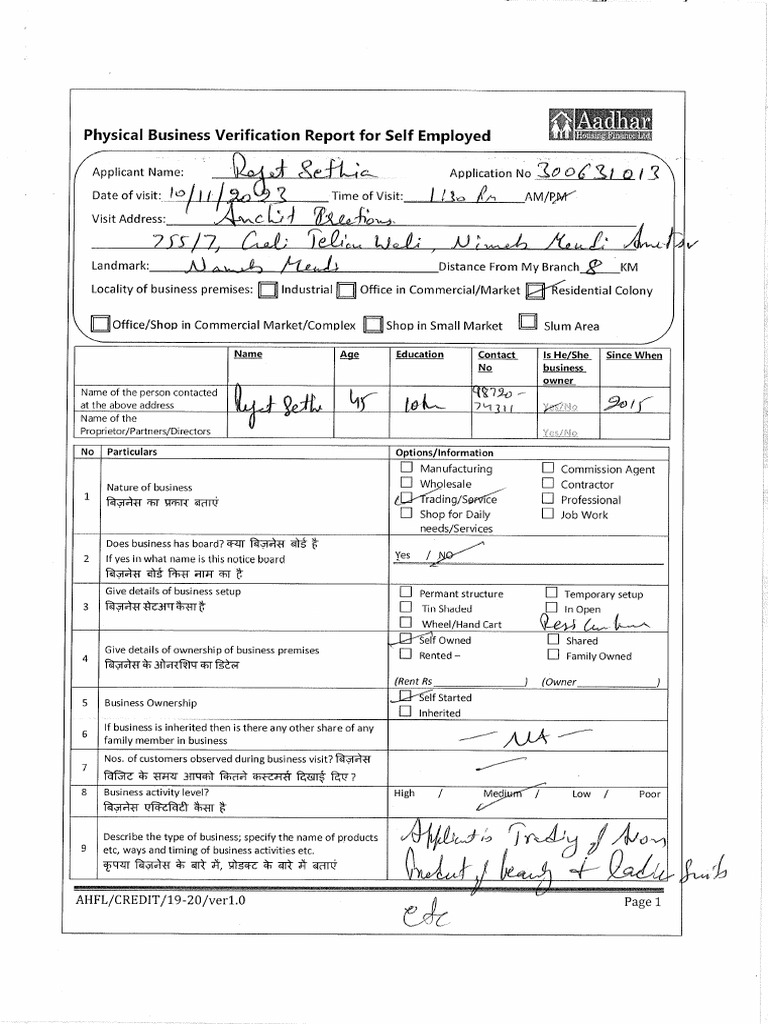 Aadhar
Housing Finance Ltd
Physical Business Verification Report for Self Employed
Applicant Name: Rajat Sethia Application No 300631013
Date of visit: 10/11/2023 Time of Visit: 1:30 Pm AM/PM
Visit Address: Anchit
755/7, Gali Telian Wali, Nimak Mandi
Landmark: Distance From My Branch 8 KM
Locality of business premises: Industrial Office in Commercial/Market Residential Colony
Office/Shop in Commercial Market/Complex Shop in Small Market Slum Area
Name Age Education Contact No Is He/She business owner Since When
Name of the person contacted at the above address 45 10th 98720-74311 Yes/No 2015
Name of the Proprietor/Partners/Directors Yes/No
No Particulars Options/Information
1 Nature of business
बिज़नेस का प्रकार बताएं
Manufacturing Commission Agent
Wholesale Contractor
Trading/Service Professional
Shop for Daily needs/Services Job Work
2 Does business has board? क्या बिज़नेस बोर्ड है
If yes in what name is this notice board
बिज़नेस बोर्ड किस नाम का है
Yes / NO
3 Give details of business setup
बिज़नेस सेटअप कैसा है
Permant structure Temporary setup
Tin Shaded In Open
Wheel/Hand Cart
4 Give details of ownership of business premises
बिज़नेस के ओनरशिप का डिटेल
Self Owned Shared
Rented – Family Owned
(Rent Rs ) (Owner )
5 Business Ownership
Self Started
Inherited
6 If business is inherited then is there any other share of any family member in business
NA
7 Nos. of customers observed during business visit? बिज़नेस
विजिट के समय आपको कितने कस्टमर्स दिखाई दिए ?
8 Business activity level?
बिज़नेस एक्टिविटी कैसा है
High / Medium / Low / Poor
9 Describe the type of business; specify the name of products etc, ways and timing of business activities etc.
कृपया बिज़नेस के बारे में, प्रोडक्ट के बारे में बताएं
Applicant is Trading of
Product of beauty + Ladies Suits
etc
AHFL/CREDIT/19-20/ver1.0 Page 1